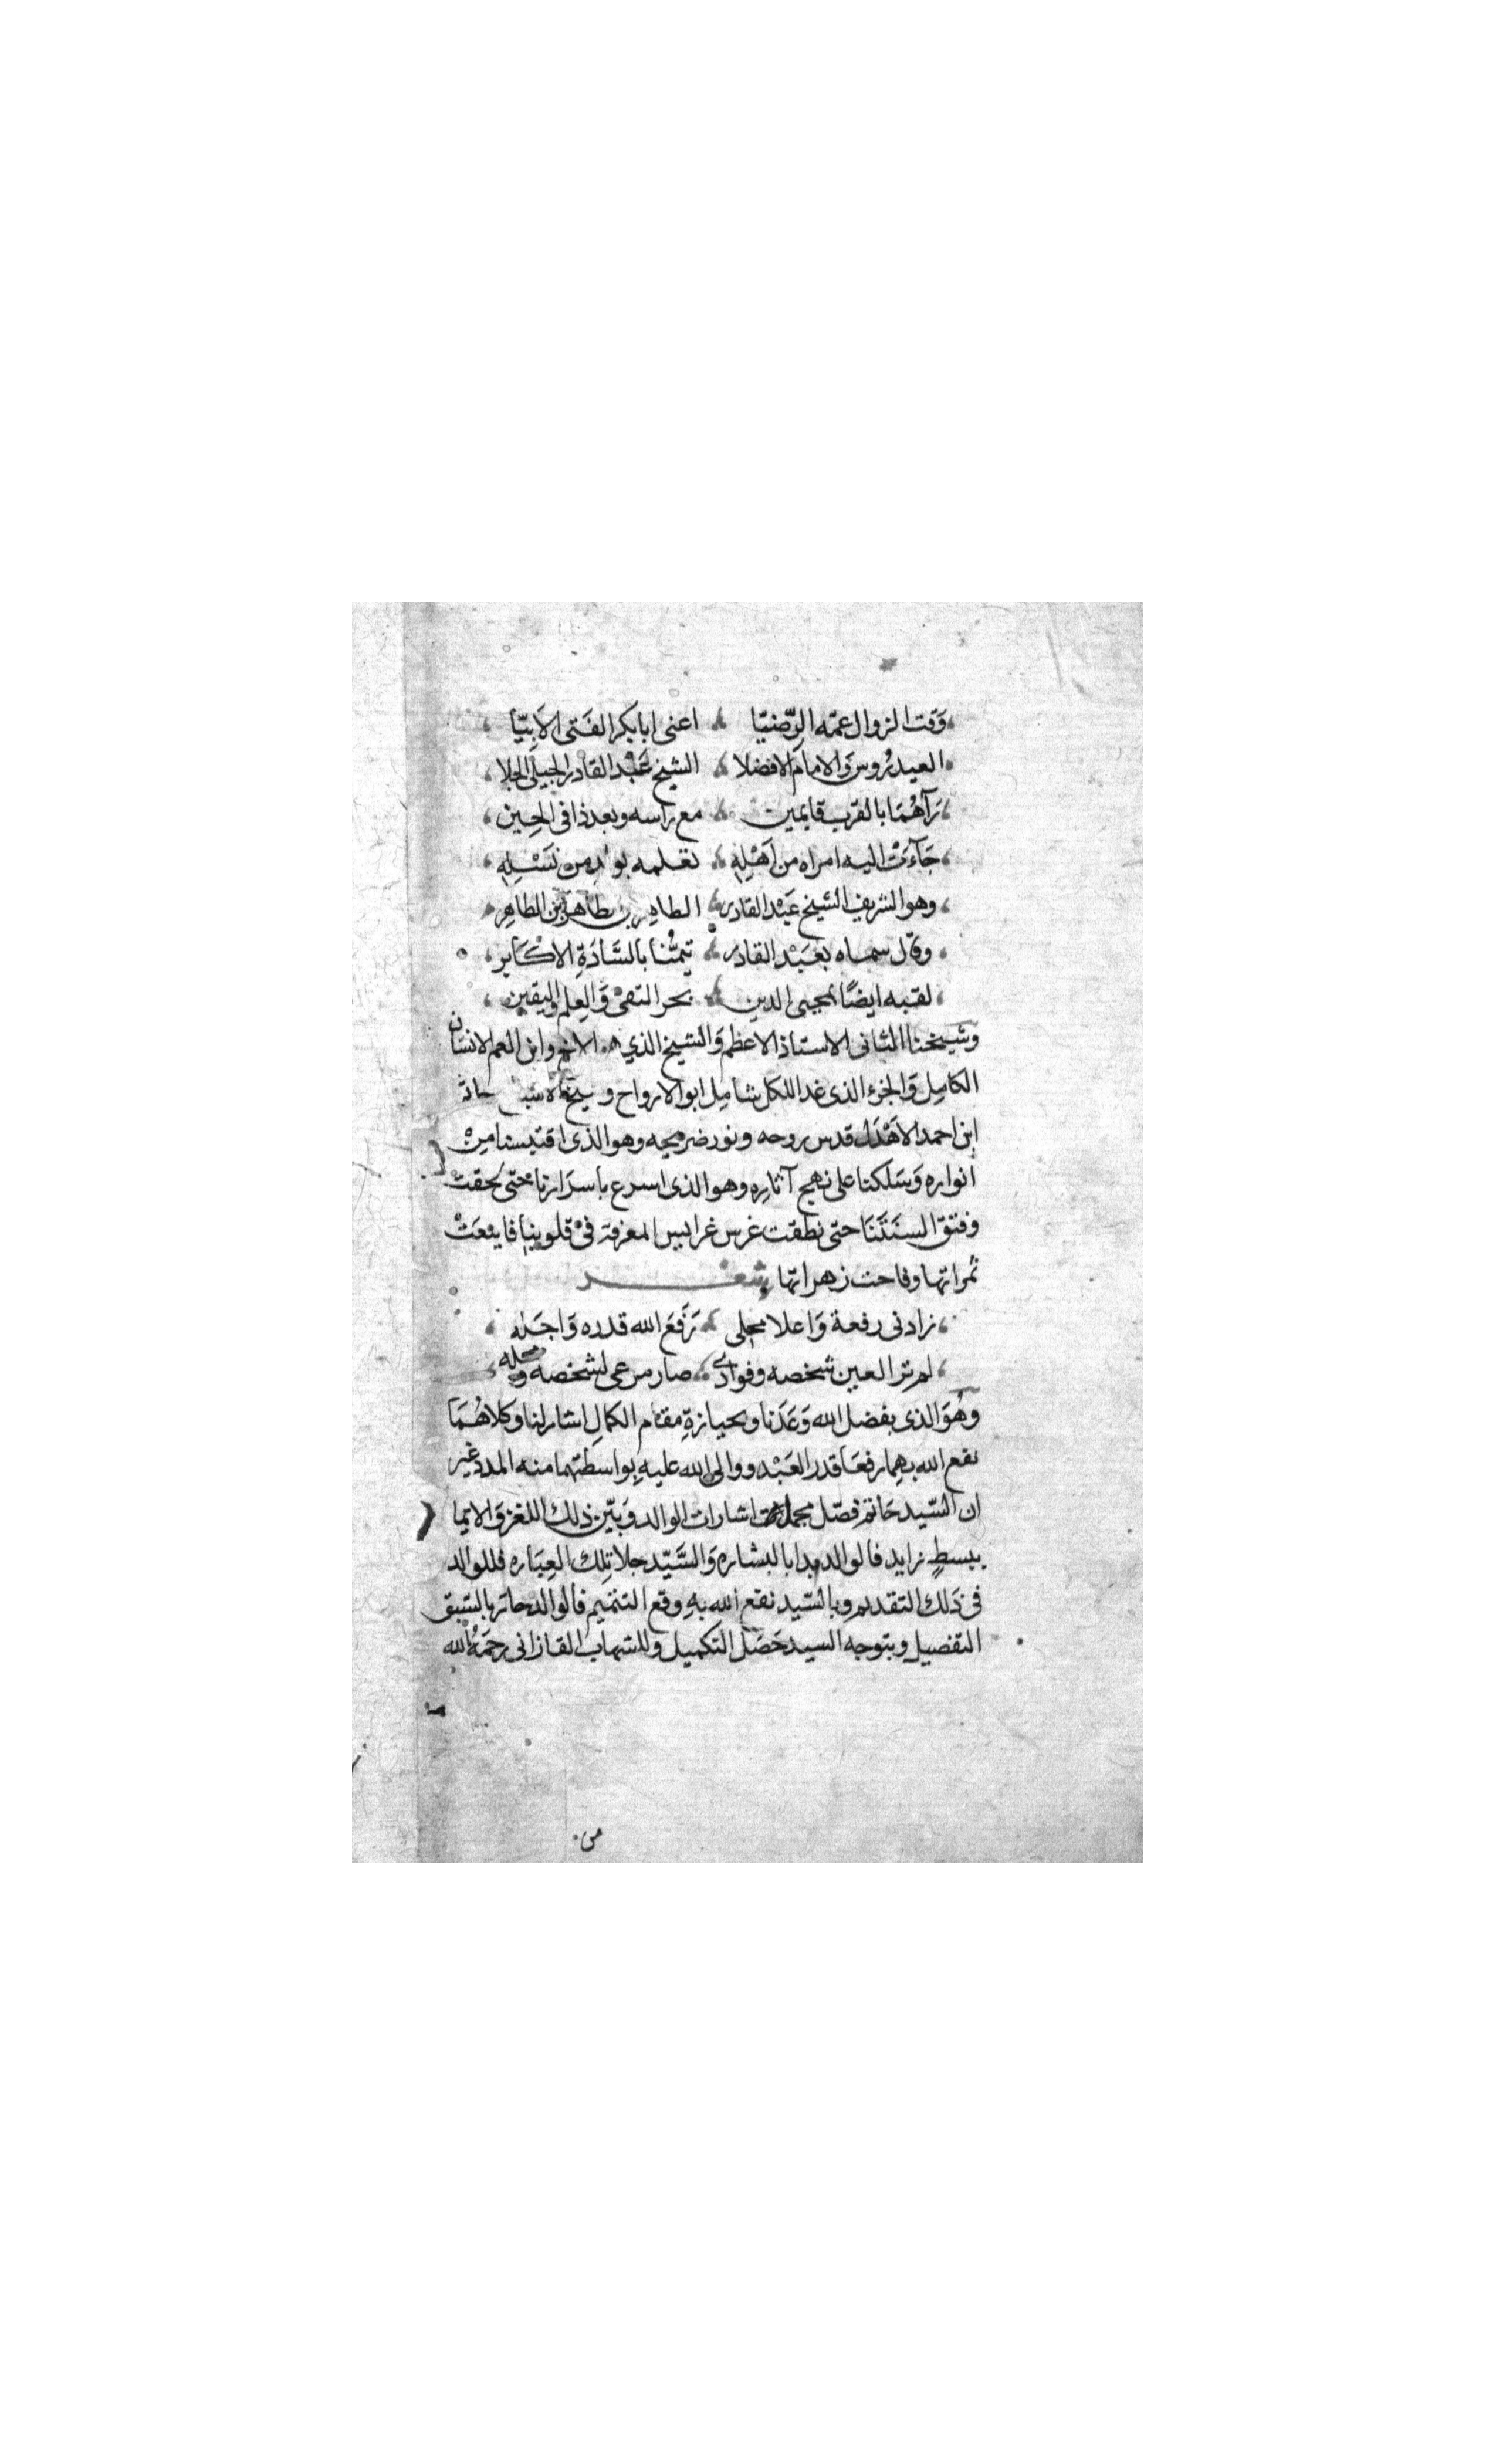 وَقت الزوال عمّه الرّضيّا اعنى ابا بكر الفَتى الاَبِيّا
العيدرُوس وَالامام الافضلا الشيخ عَبْد القادر الجيلى الجلا
رَآهُمَا بالقرب قايمين مع راسه وبعد ذا فى الحِين
جَآءَتْ اليه امراه من اَهْلِهِ تعلمه من نَسْلِهِ
وهو الشريف الشيخ عَبْد القادر الطاهر بن طاهر بن الطاهِر
وقال سماه بعَبْد القادر تيمُّنا بالسَّادَةِ الاكَابِر
لقبه ايضًا بمحيى الدين بحر التقىْ وَالعِلم واليقين
وشيخنا الثانى الاستاذ الاعظم وَالشيخ الذي الاخ وابن العم الانسان
الكامِل وَالجزء الذى غدا للكل شامِل ابو الارواح و
ابن احمد الاَهْدَل قدس روحه ونور ضريحه وهو الذى اقتبسنا مِنْ
انواره وَسَلكنا على نهج آثاره وهو الذى اسرع باسرَارنا حتى لحقتْ
وفتق السنَتَنَا حتى نطقت غرس غرايس المعرفة فىْ قلوبنا فاينعَتْ
ثمراتها وفاحت زهراتها شعر
زادنى رفعة وَاعلا محلى رَفَعَ الله قدره وَاجَله
لم تر العين شخصه وفوادى صار مرعى لشخصه ومحله
وهُوَ الذى بفضل الله وَعَدَنا وبحيازةِ مقام الكمالِ اشار لنا وكلاهُمَا
نفع الله بهِما رفعَا قدر العَبْد ووالى الله عليهِ بواسطتهما منه المدد غير
ان السّيد حَاتم فصّل مجملات اشارات الوالد وَبَيّن ذلك اللغز وَالايما
ببسطٍ زايد فالوالد بدا بالبشاره وَالسَّيّد جلا تِلك العِبَاره فللوالد
فى ذَلك التقديم وبالسّيد نفع الله بهِ وقع التتميم فالوالد حاز بالسّبق
التفصيل وبتوجه السيد حَصَل التكميل وللشهاب القازانى رحمَهُ الله
من